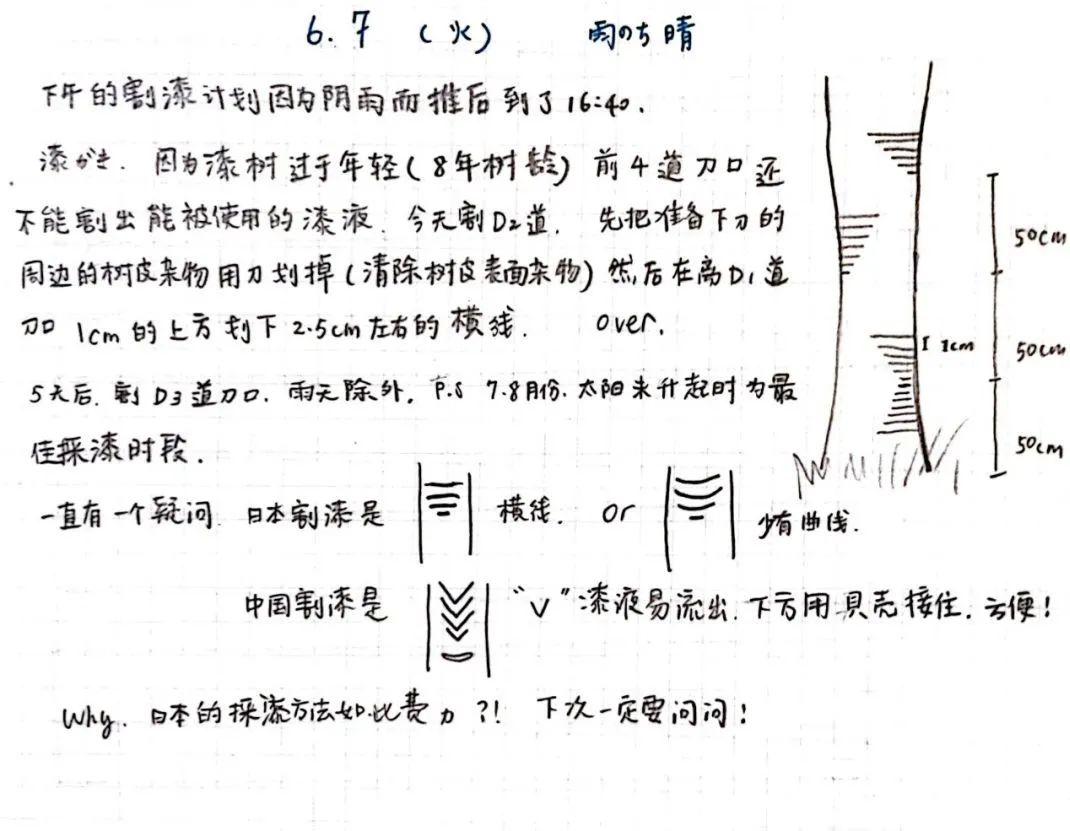 6.7 (火) 雨のち晴
下午的割漆计划因为阴雨而推后到了16:40.
漆がき. 因为漆树过于年轻(8年树龄) 前4道刀口还
不能割出能被使用的漆液. 今天割D2道. 先把准备下刀的
周边的树皮杂物用刀划掉(清除树皮表面杂物) 然后在离D1道
刀口 1cm的上方划下2.5cm左右的横线. over.
5天后. 割D3道刀口. 雨天除外. P.S 7.8月份. 太阳未升起时为最
佳採漆时段.
一直有一个疑问. 日本割漆是 横线. or 少有曲线.
中国割漆是 "V"漆液易流出. 下方用贝壳接住. 方便!
Why. 日本的採漆方法如此费力?! 下次一定要问问!
50cm
1cm
50cm
50cm